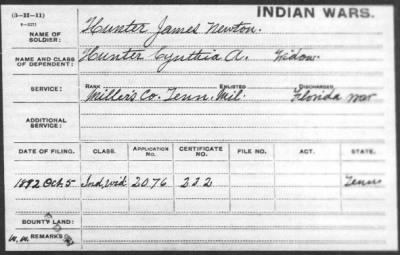 (3-III-11)
INDIAN WARS.
NAME OF SOLDIER: Hunter James Newton.
NAME AND CLASS OF DEPENDENT: Hunter Cynthia A. Widow
SERVICE: RANK ENLISTED DISCHARGED
Miller's Co. Tenn. Mil. Florida War
ADDITIONAL SERVICE:
DATE OF FILING. CLASS. APPLICATION No. CERTIFICATE No. FILE NO. ACT. STATE.
1892 Oct. 5 Ind. Wid. 2076 232 Tenn
BOUNTY LAND:
W.W. REMARKS: